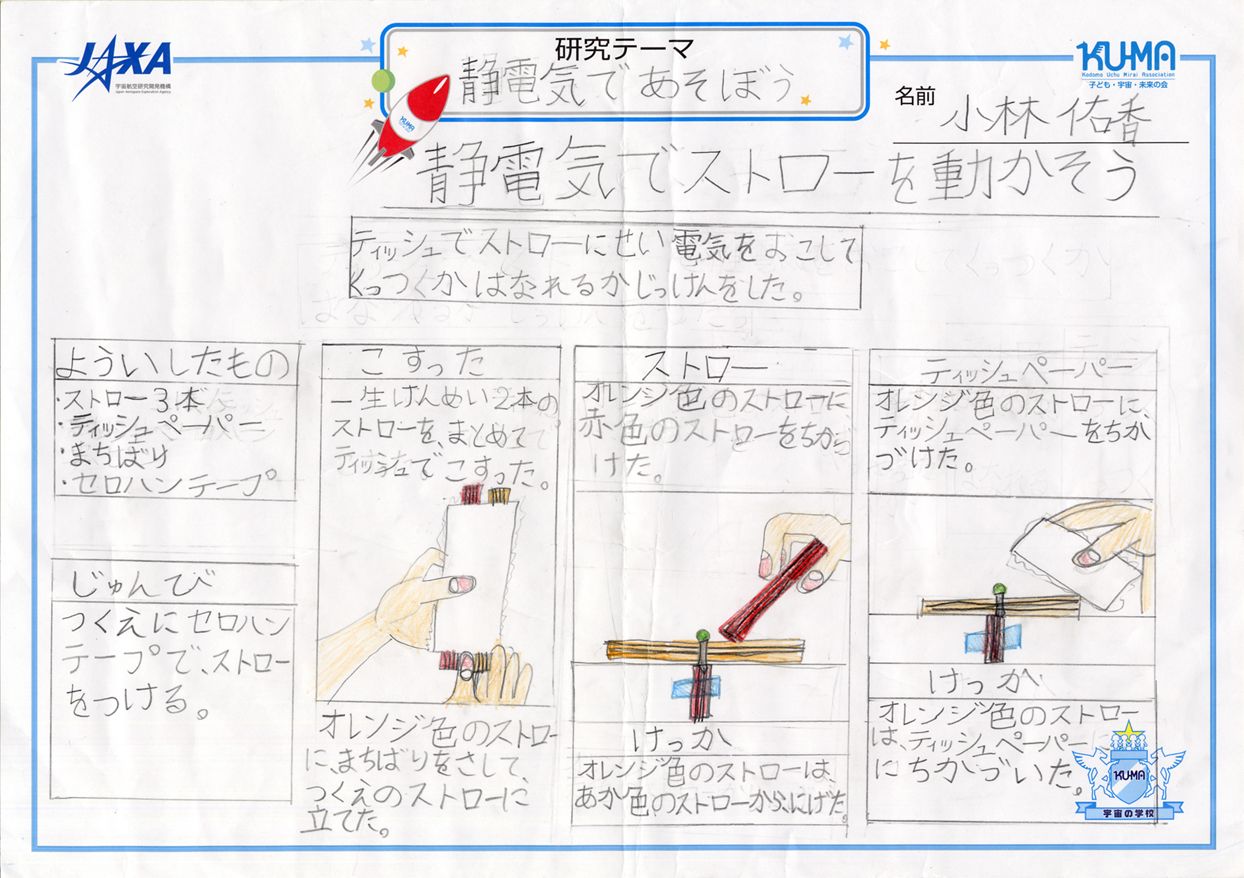 JAXA
宇宙航空研究開発機構
Japan Aerospace Exploration Agency
研究テーマ
静電気であそぼう
KUMA
KUMA
Kodomo Uchu Mirai Association
子ども・宇宙・未来の会
名前 小林 佑香
静電気でストローを動かそう
ティッシュでストローにせい電気をおこして
くっつくかはなれるかじっけんをした。
よういしたもの
・ストロー3本
・ティッシュペーパー
・まちばり
・セロハンテープ
じゅんび
つくえにセロハン
テープで、ストロー
をつける。
こすった
一生けんめい2本の
ストローを、まとめて
ティッシュでこすった。
オレンジ色のストロー
に、まちばりをさして、
つくえのストローに
立てた。
ストロー
オレンジ色のストローに
赤色のストローをちかづ
けた。
けっか
オレンジ色のストローは、
あか色のストローから、にげた。
ティッシュペーパー
オレンジ色のストローに、
ティッシュペーパーをちか
づけた。
けっか
オレンジ色のストロー
は、ティッシュペーパーに
にちかづいた。
KUMA
宇宙の学校